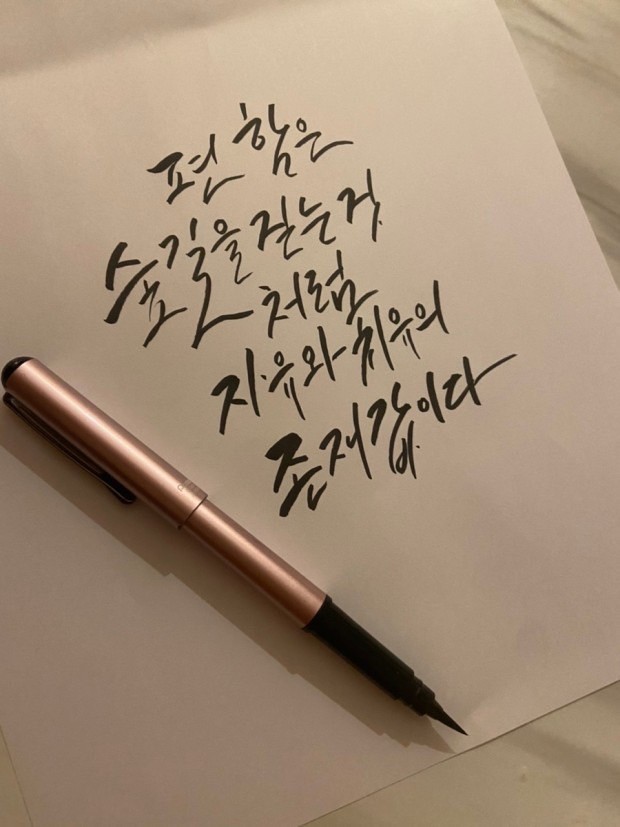 편함은
숲길을 걷는 것
처럼
자유와 치유의
존재감이다